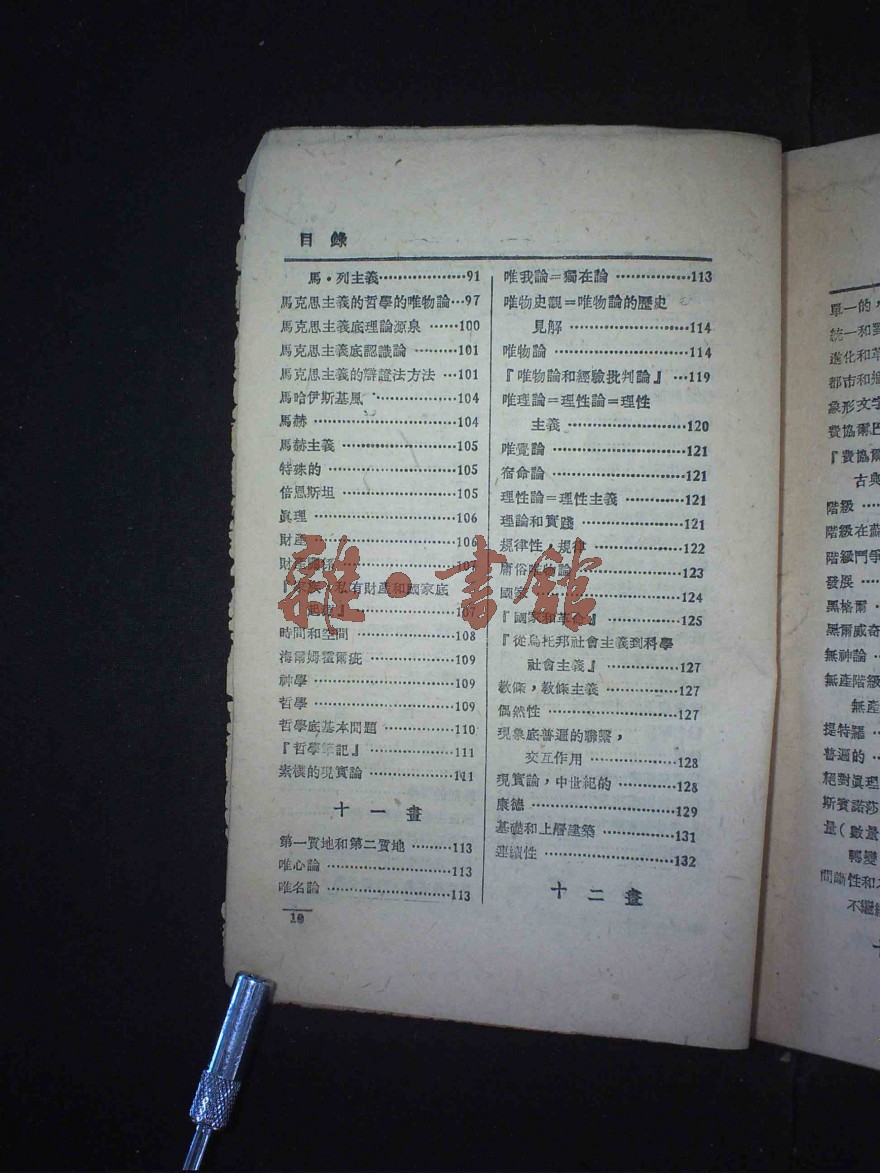 目錄
馬·列主義··················91
馬克思主義的哲學的唯物論···97
馬克思主義底理論源泉······100
馬克思主義底認識論·········101
馬克思主義的辯證法方法···101
馬哈伊斯基風···············104
馬赫························104
馬赫主義··················105
特殊的·····················105
倍恩斯坦··················105
眞理························106
財產························106
財產關係··················107
『家族，私有財產和國家底
起源』·····················107
時間和空間···············108
海爾姆霍爾疵···············109
神學························109
哲學························109
哲學底基本問題············110
『哲學筆記』···············111
素樸的現實論···············111
十一畫
第一質地和第二質地·········113
唯心論·····················113
唯名論·····················113
10
唯我論＝獨在論············113
唯物史觀＝唯物論的歷史
見解·····················114
唯物論·····················114
『唯物論和經驗批判論』···119
唯理論＝理性論＝理性
主義·····················120
唯覺論·····················121
宿命論·····················121
理性論＝理性主義·········121
理論和實踐···············121
規律性，規律···············122
庸俗唯物論···············123
國家························124
『國家和革命』············125
『從烏托邦社會主義到科學
社會主義』···············127
敎條，敎條主義············127
偶然性·····················127
現象底普遍的聯繫，
交互作用···············128
現實論，中世紀的·········128
康德························129
基礎和上層建築············131
連續性·····················132
十二畫
雜·書館
單一的，
統一和
進化和
都市和
象形文字
費協爾巴
『費協爾
古典
階級
階級在蘇
階級鬥爭
發展
黑格爾
無神論
無產階級
無產
提特羅
普遍的
絕對眞理
斯賓諾莎
量(數量
轉變
間斷性和
不繼續